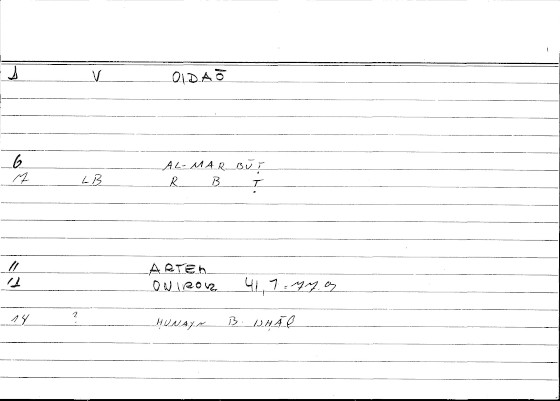 1 V OIDAŌ
6 AL-MARBŪṬ
7 LB R B Ṭ
11 ARTEM
12 ONIROCR 41,7
14 ? ḤUNAYN B. ISḤĀQ